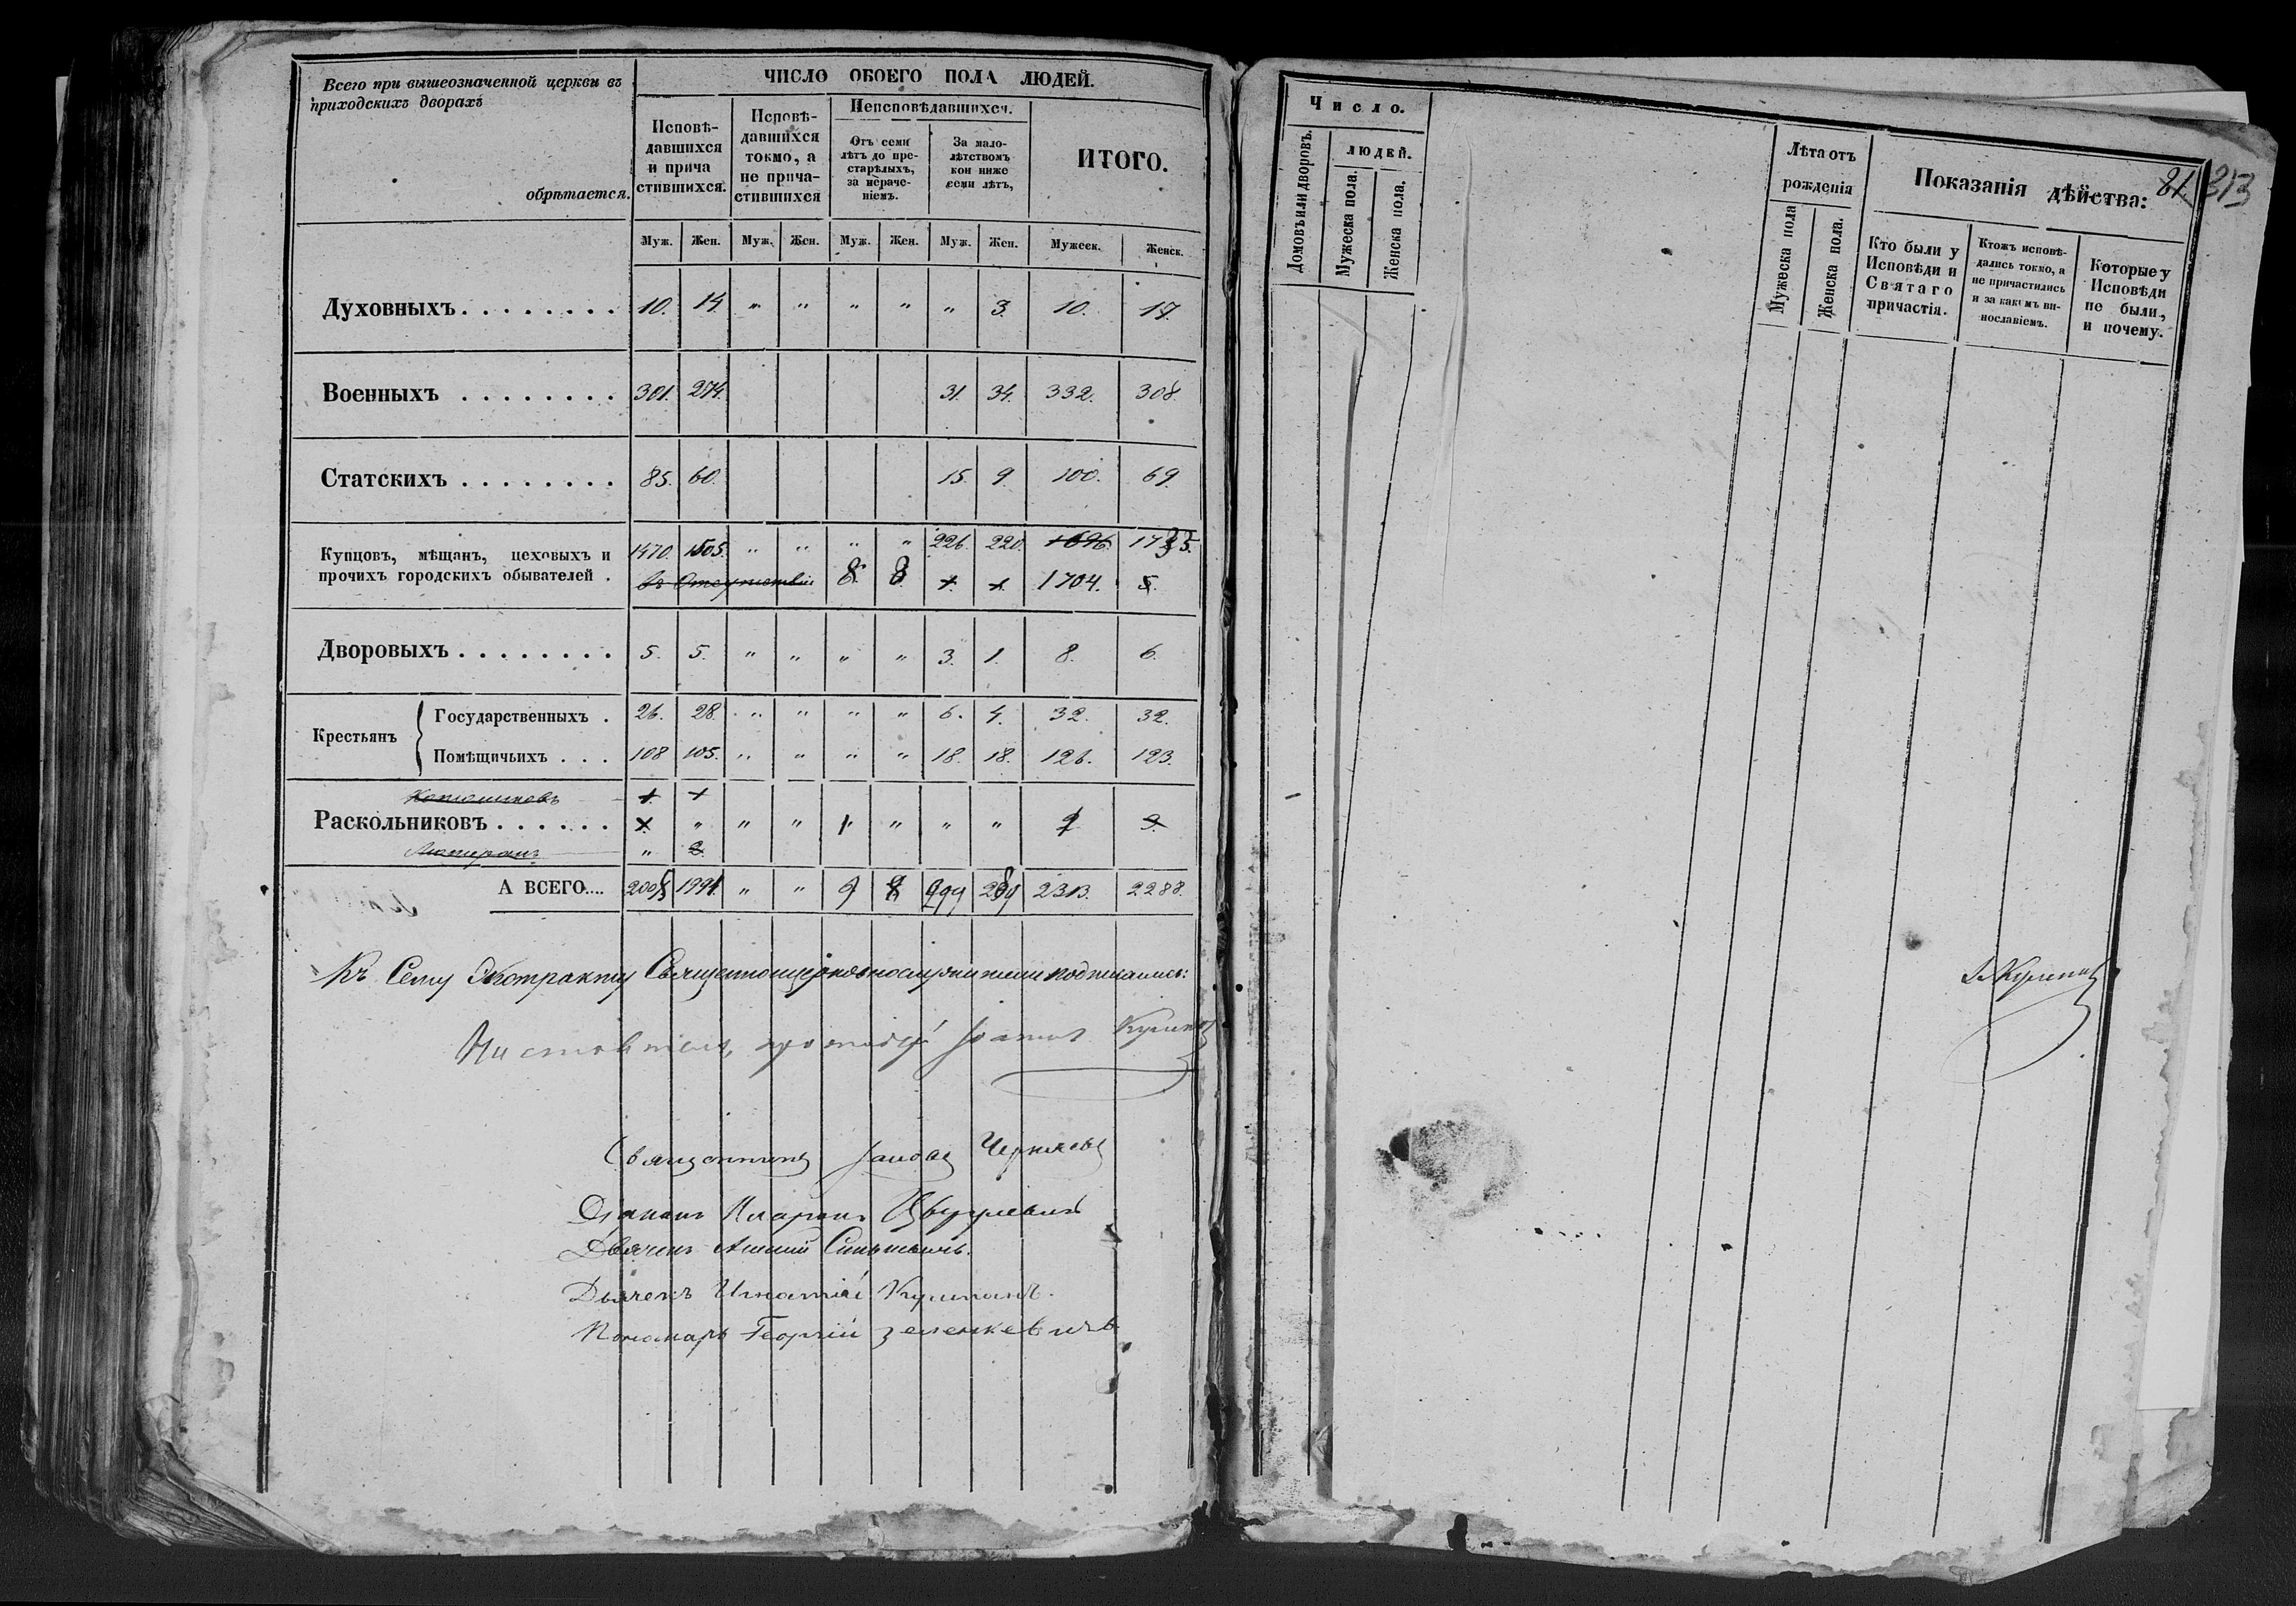 Всего при вышеозначенной церкви въ
приходскихъ дворахъ
обрѣтается.
ЧИСЛО ОБОЕГО ПОЛА ЛЮДЕЙ.
Исповѣ-
давшихся
и прича
стившихся.
Исповѣ-
давшихся
токмо, а
не прича-
стившихся
Неисповѣдавшихся.
Отъ семи
лѣтъ до пре-
старѣлыхъ,
за нераче-
ніемъ.
За мало-
лѣтствомъ
кои ниже
семи лѣтъ,
ИТОГО.
Муж. Жен. Муж. Жен. Муж. Жен. Муж. Жен. Мужеск. Женск.
Духовныхъ 10. 14. " " " " " 3. 10. 17.
Военныхъ 301. 274. 31. 34. 332. 308.
Статскихъ 85. 60. 15. 9. 100. 69.
Купцовъ, мѣщанъ, цеховыхъ и 1470. 1505. " " " " 226. 220. 1696.
прочихъ городскихъ обывателей . въ Отсутствіи 8. 8. 1704.
Дворовыхъ 5. 5. " " " " 3. 1. 8. 6.
Крестьянъ
Государственныхъ . 26. 28. " " " " 6. 4. 32. 32.
Помѣщичьихъ . . . 108 105. " " " " 18. 18. 126. 123.
Раскольниковъ " " " 1 " " "
А ВСЕГО.... 1991 " " 9 8 299 289 2313. 2288.
Къ Сему Экстракту Священноцерковнослужители подписались:
Настоятель, протоіерей Іоаннъ
Священникъ
Діаконъ
Дьячекъ
Дьячекъ Игнатій
Пономарь Георгій Зеленкевичъ
Число.
Домовъ или дворовъ.
людей.
Мужеска пола.
Женска пола.
Лѣта отъ
рожденія
Мужеска пола
Женска пола.
Показанія дѣйства:
81. 313
Кто были у
Исповѣди и
Святаго
причастія.
Ктожъ исповѣ-
дались токмо, а
не причастились
и за какимъ ви-
нословіемъ.
Которые у
Исповѣди
не были,
и почему.